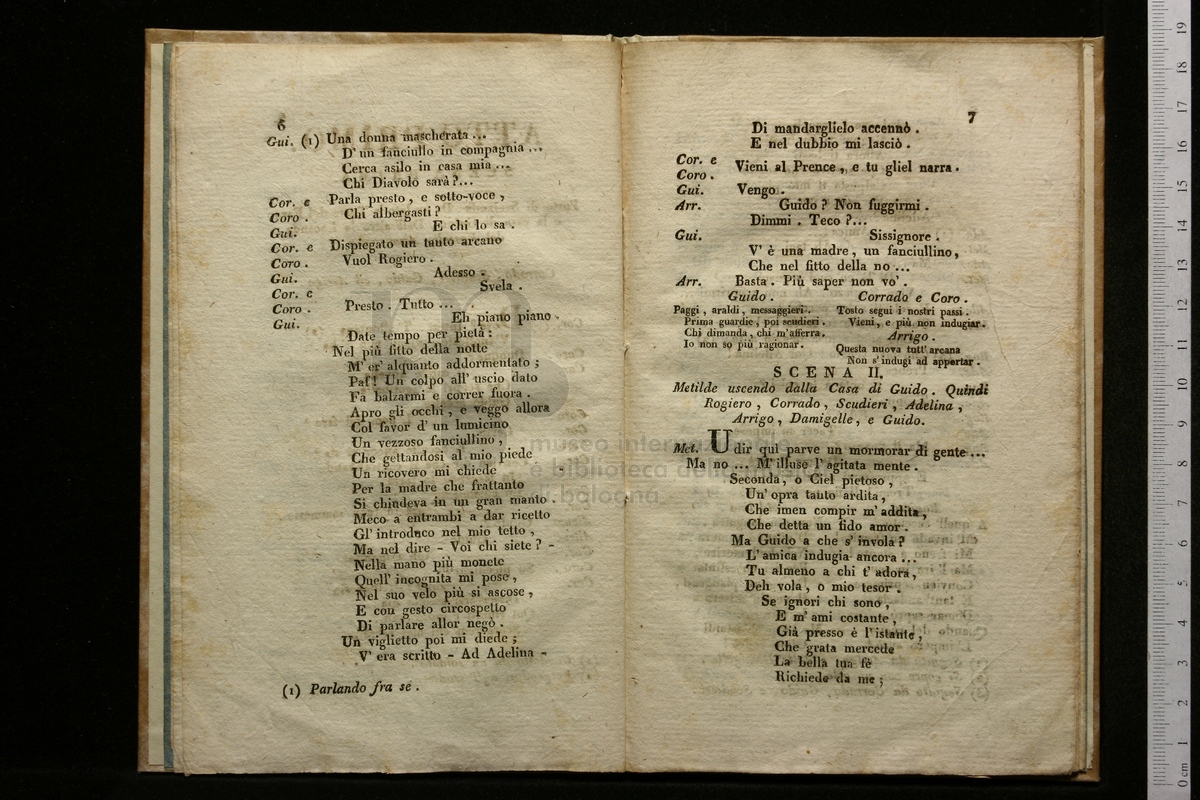 6
Gui. (1) Una donna mascherata ...
D' un fanciullo in compagnia ...
Cerca asilo in casa mia ...
Chi Diavolo sarà?...
Cor. e Parla presto, e sotto-voce,
Coro. Chi albergasti?
Gui. E chi lo sa.
Cor. e Dispiegato un tanto arcano
Coro. Vuol Rogiero.
Gui. Adesso.
Cor. e Svela.
Coro. Presto. Tutto ...
Gui. Eh piano piano.
Date tempo per pietà:
Nel più fitto della notte
M' er' alquanto addormentato;
Paf! Un colpo all' uscio dato
Fa balzarmi e correr fuora.
Apro gli occhi, e veggo allora
Col favor d' un lumicino
Un vezzoso fanciullino,
Che gettandosi al mio piede
Un ricovero mi chiede
Per la madre che frattanto
Si chiudeva in un gran manto
Meco a entrambi a dar ricetto
Gl' introduco nel mio tetto,
Ma nel dire - Voi chi siete? -
Nella mano più monete
Quell' incognita mi pose,
Nel suo velo più si ascose,
E con gesto circospetto
Di parlare allor negò.
Un viglietto poi mi diede;
V' era scritto - Ad Adelina -
(1) Parlando fra se.
7
Di mandarglielo accennò.
E nel dubbio mi lasciò.
Cor. e
Coro. Vieni al Prence, e tu gliel narra.
Gui. Vengo.
Arr. Guido? Non fuggirmi.
Dimmi. Teco?...
Gui. Sissignore.
V' è una madre, un fanciullino,
Che nel fitto della no ...
Arr. Basta. Più saper non vo'.
Guido. Corrado e Coro.
Paggi, araldi, messaggieri. Tosto segui i nostri passi.
Prima guardie, poi scudieri. Vieni, e più non indugiar.
Chi dimanda, chi m'afferra. Arrigo.
Io non so più ragionar. Questa nuova tutt' arcana
Non s' indugi ad apportar.
SCENA II.
Metilde uscendo dalla Casa di Guido. Quindi
Rogiero, Corrado, Scudieri, Adelina,
Arrigo, Damigelle, e Guido.
Met. Udir quì parve un mormorar di gente ...
Ma no ... M' illuse l' agitata mente.
Seconda, o Ciel pietoso,
Un' opra tanto ardita,
Che imen compir m' addita,
Che detta un fido amor.
Ma Guido a che s' invola?
L' amica indugia ancora ...
Tu almeno a chi t' adora,
Deh vola, o mio tesor.
Se ignori chi sono,
E m' ami costante,
Già presso è l' istante,
Che grata mercede
La bella tua fè
Richiede da me;
museo internazionale
e biblioteca della musica
bologna
0 cm 1 2 3 4 5 6 7 8 9 10 11 12 13 14 15 16 17 18 19